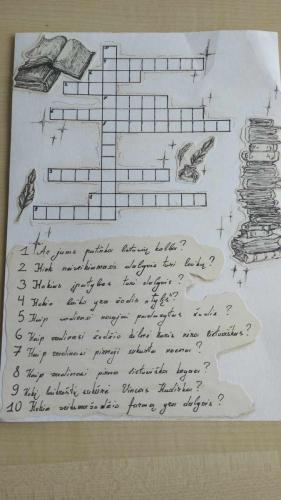 1 Ar jums patinka lietuvių kalba?
2 Kiek neveikiamasis dalyvis turi laikų?
3 Kokias ypatybes turi dalyvis?
4 Kokio laiko yra žodis
5 Kaip vadinasi naujai padarytas žodis?
6 Kaip vadinasi žodžio kilmė kuris nėra lietuviškas?
7 Kaip vadinosi pirmoji sukurta
8 Kaip vadinosi pirma lietuviška knyga?
9 Kokį laikraštį sukūrė Vincas Kudirka?
10 Kokia veiksmažodžio forma yra dalyvis?